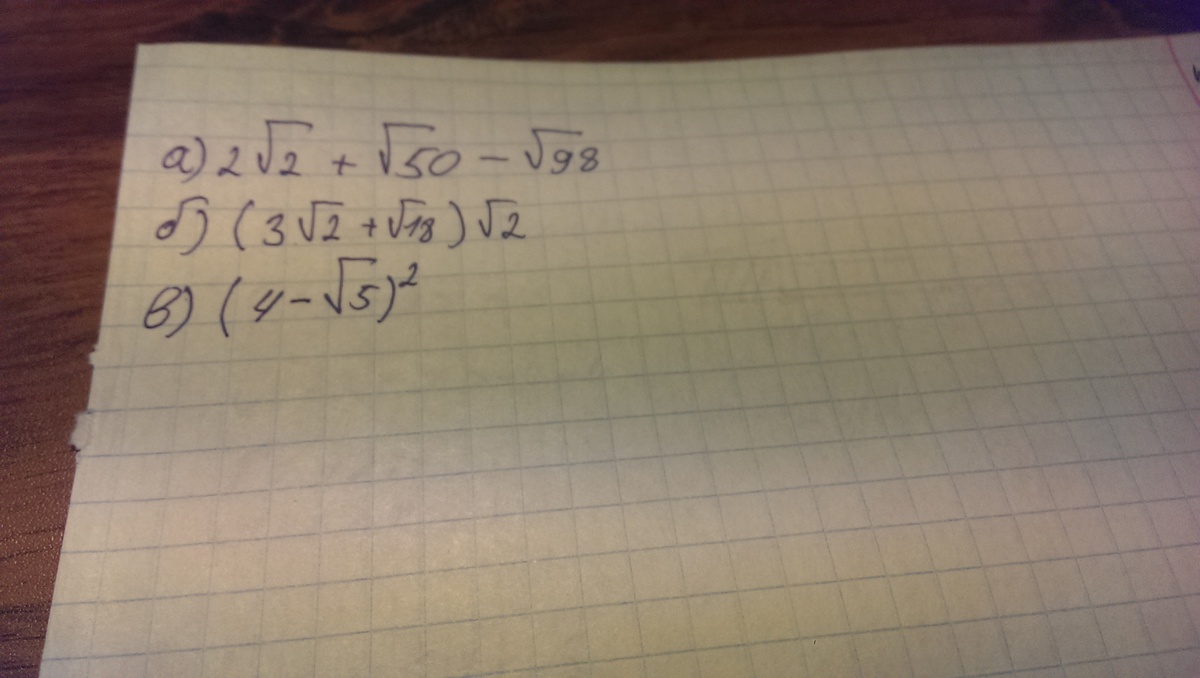 а) 2√2 + √50 − √98
б) (3√2 + √18)√2
в) (4 − √5)²